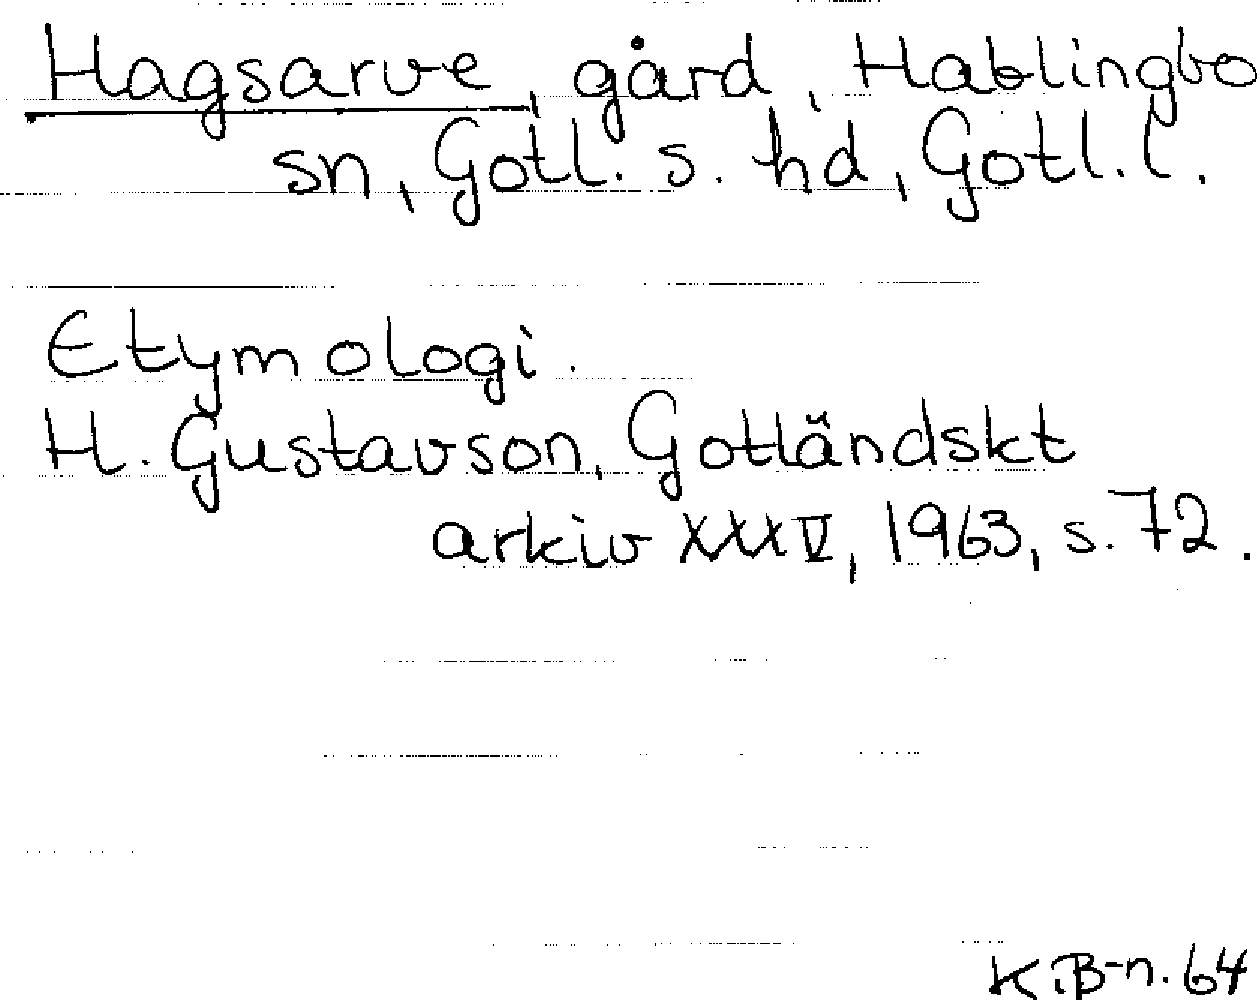 Hagsarve, gård, Hablingbo
sn, Gotl. s. hd, Gotl. l.
Etymologi.
H. Gustavson, Gotländskt
arkiv XXXV, 1963, s. 72.
K.B-n. 64